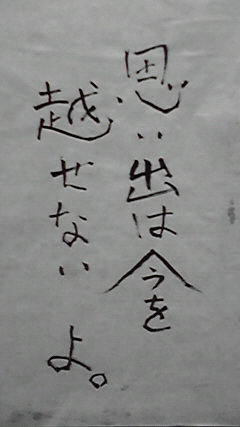 思い出は今を
越せないよ。